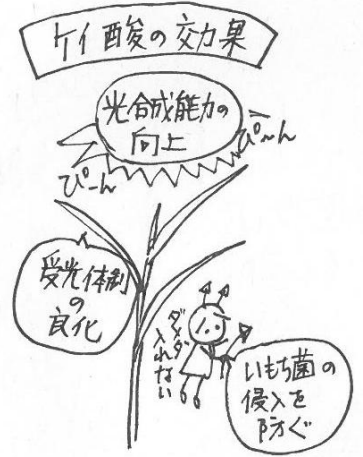 ケイ酸の効果
光合成能力の
向上
ぴーん
ぴ〜ん
受光体制
の
良化
ダメダ
入れない
いもち菌の
侵入を
防ぐ